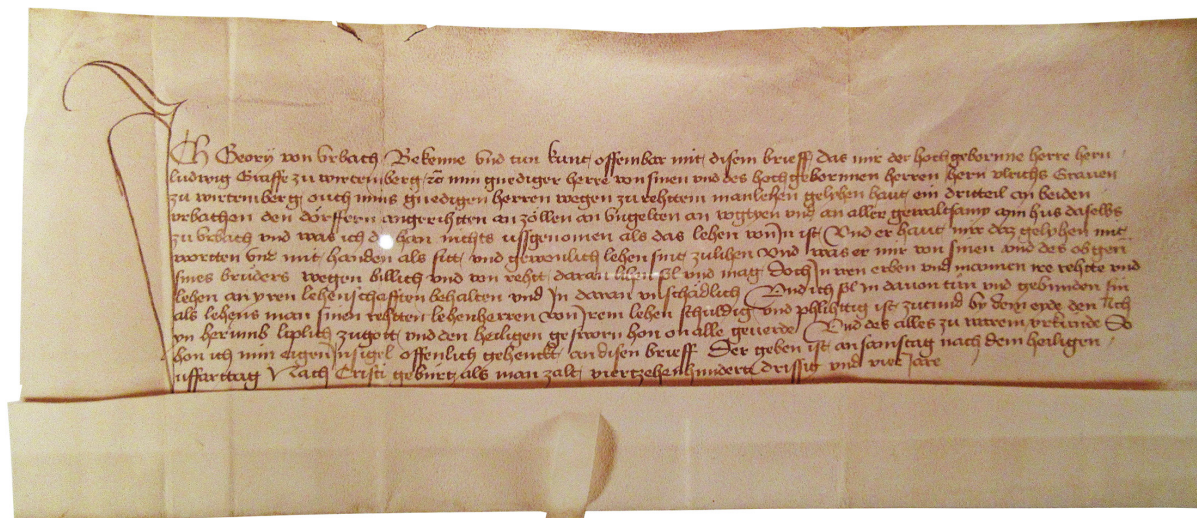 Ich Georg von Urbach Bekenne und tun kunt offembar mit disem brieff das mir der hochgeborne herre hern
ludwig Graffe zu wirtemberg min gnediger herre von sinen und des hochgebornnen herren hern ulrichs Grauen
zu wirtemberg ouch mins gnedigen herren wegen zu rehttem manlehen gelyhen haut ein dritteil an beiden
urbachen den dörffern an gerihtten an zöllen an ungelten an vogtyen und an aller gewaltsamy ann hus daselbs
zu Urbach und was ich han nichts ussgenomen als das lehen von In ist Und er haut mir daz gelyhen mit
wortten und mit handen als sitt und gewonlich lehen sint zulihen Und was er mir von sinen und des obgen
sines bruders wegen billich und von rehtt daran lihen sol und mag doch In iren erben und mannen ire rehtte und
lehen an yren lehenschafften behalten und In daran unschädlich Und ich sol In dauon tun und gebunden sin
als lehens man sinen rehtten lehenherren von Irem lehen schuldig und phlihttig ist zutund by dem eyde den ich
yn herumb liplich zugott und den heiligen gesworn hon on alle geuerde Und des alles zu warem urkunde So
hon ich min eigen Insigel offenlich gehenckt an disen brieff Der geben ist an samstag nach dem heiligen
uffarttag Nach Cristi geburt als man zalt viertzehenhundert drissig und vier Jare